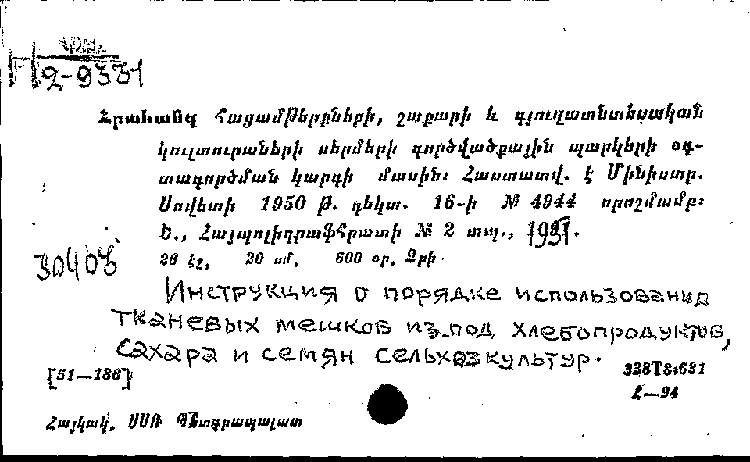 2-9331
Հրահանգ Հացամթերքների, շաքարի և գյուղատնտեսական
կուլտուրաների սերմերի գործվածքային պարկերի օգ-
տագործման կարգի մասին: Հաստատվ. է Մինիստր.
Սովետի 1950 թ. դեկտ. 16-ի № 4944 որոշմամբ:
Ե., Հայպոլիգրաֆհրատի № 2 տպ., 1951.
26 էջ, 20 սմ, 600 օր. Ձրի
30408
Инструкция о порядке использования
тканевых мешков из под хлебопродуктов,
сахара и семян сельхозкультур.
[51—186]
338T8:631
Հ—94
Հայկակ. ՍՍՌ Պետգրապալատ